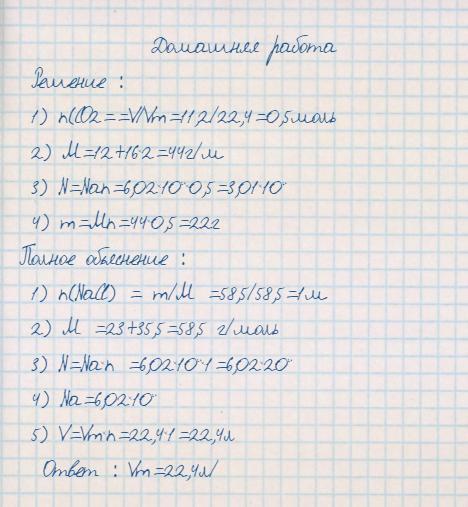 Домашняя работа
Решение :
1) n(O2 = =V/Vm=11,2/22,4=0,5моль
2) M=12+16·2=44г/м
3) N=Nan=6,02·10·0,5=3,01·10
4) m=Mn=44·0,5=22г
Полное объяснение :
1) n(NaCl) = m/M =58,5/58,5=1м
2) M =23+35,5=58,5 г/моль
3) N=Na·n =6,02·10·1=6,02·20
4) Na=6,02·10
5) V=Vm·n=22,4·1=22,4л
Ответ : Vm=22,4л/